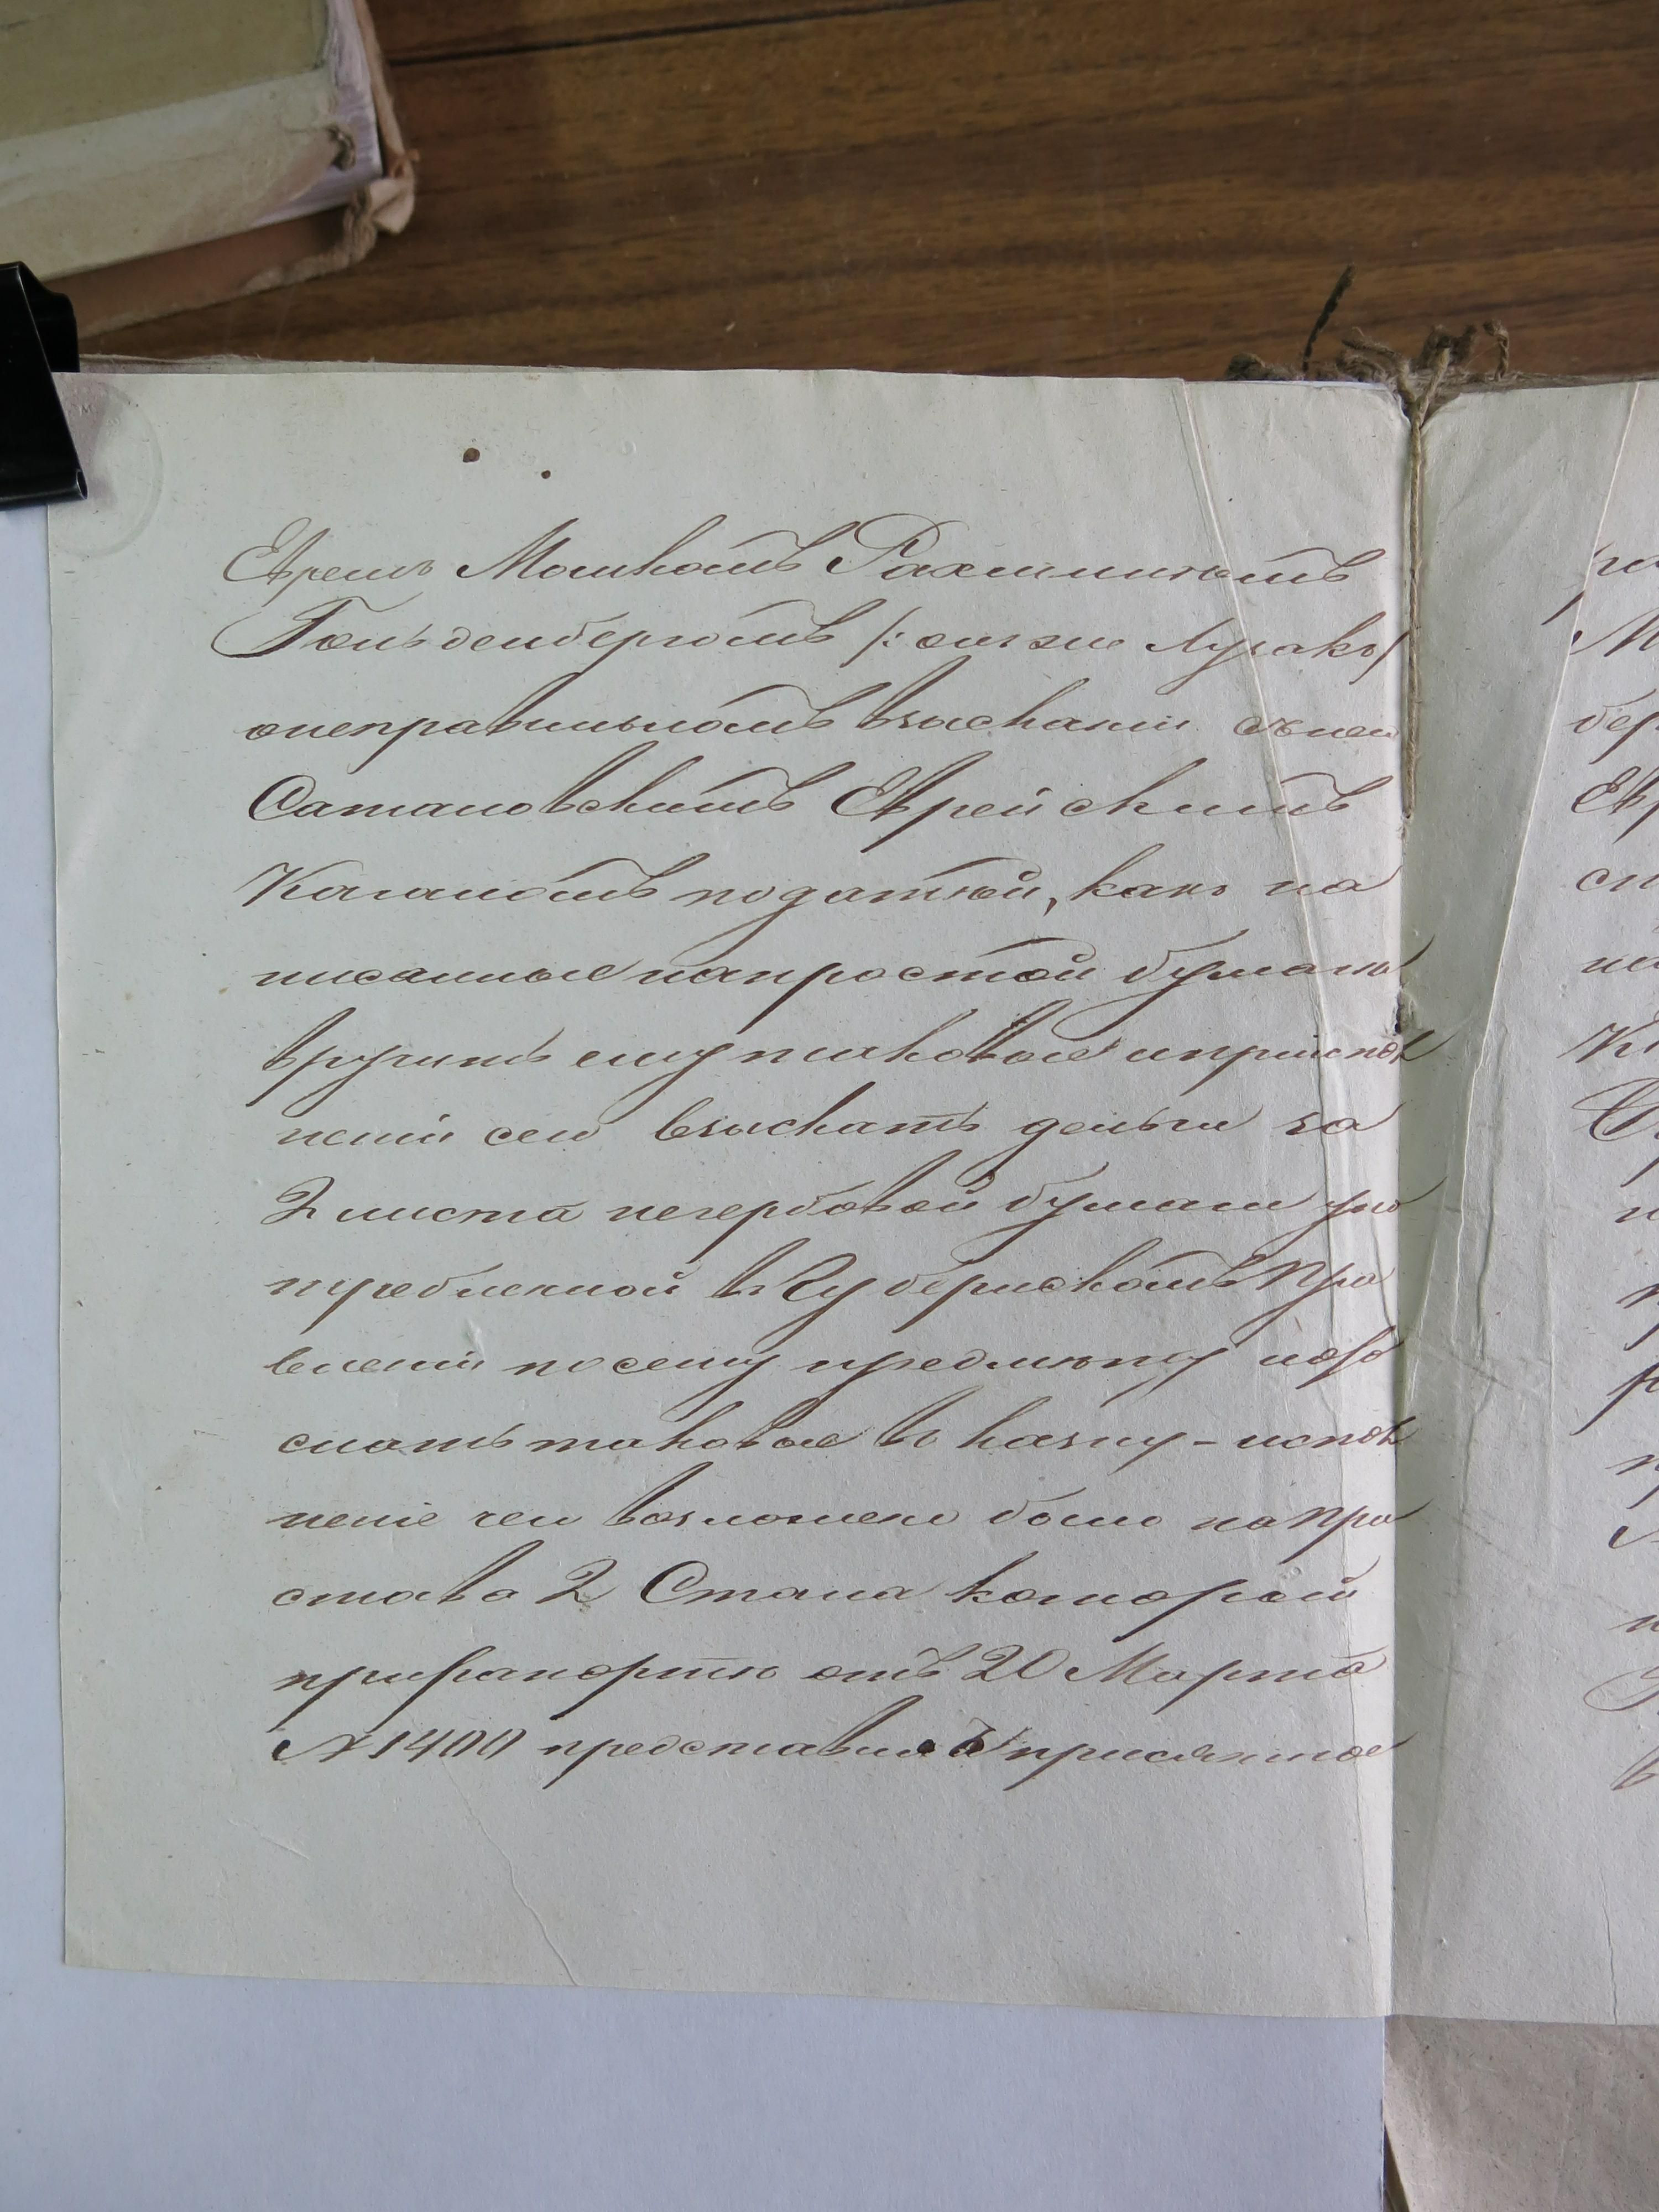 Евреемъ Мошкомъ Рахмилиномъ
Гольденбергомъ /: онъ же Лузакъ/
онеправильномъ взысканіи снего
Сатановскимъ Еврейскимъ
Кагаломъ податной, какъ на
писанные напростой бумагѣ
вручить ему таковые иприиспол
неніи сего взыскать деньги за
2 листа негербовой бумаги упо
требленной въ Губернскомъ Пра
вленіи посему предмѣту иото
слать таковые въ казну – испол
неніе чего возложено было на При
става 2 Стана который
прирапортѣ отъ 20 Марта
№ 1400 представилъ присланное
ра
М
бер
Евр